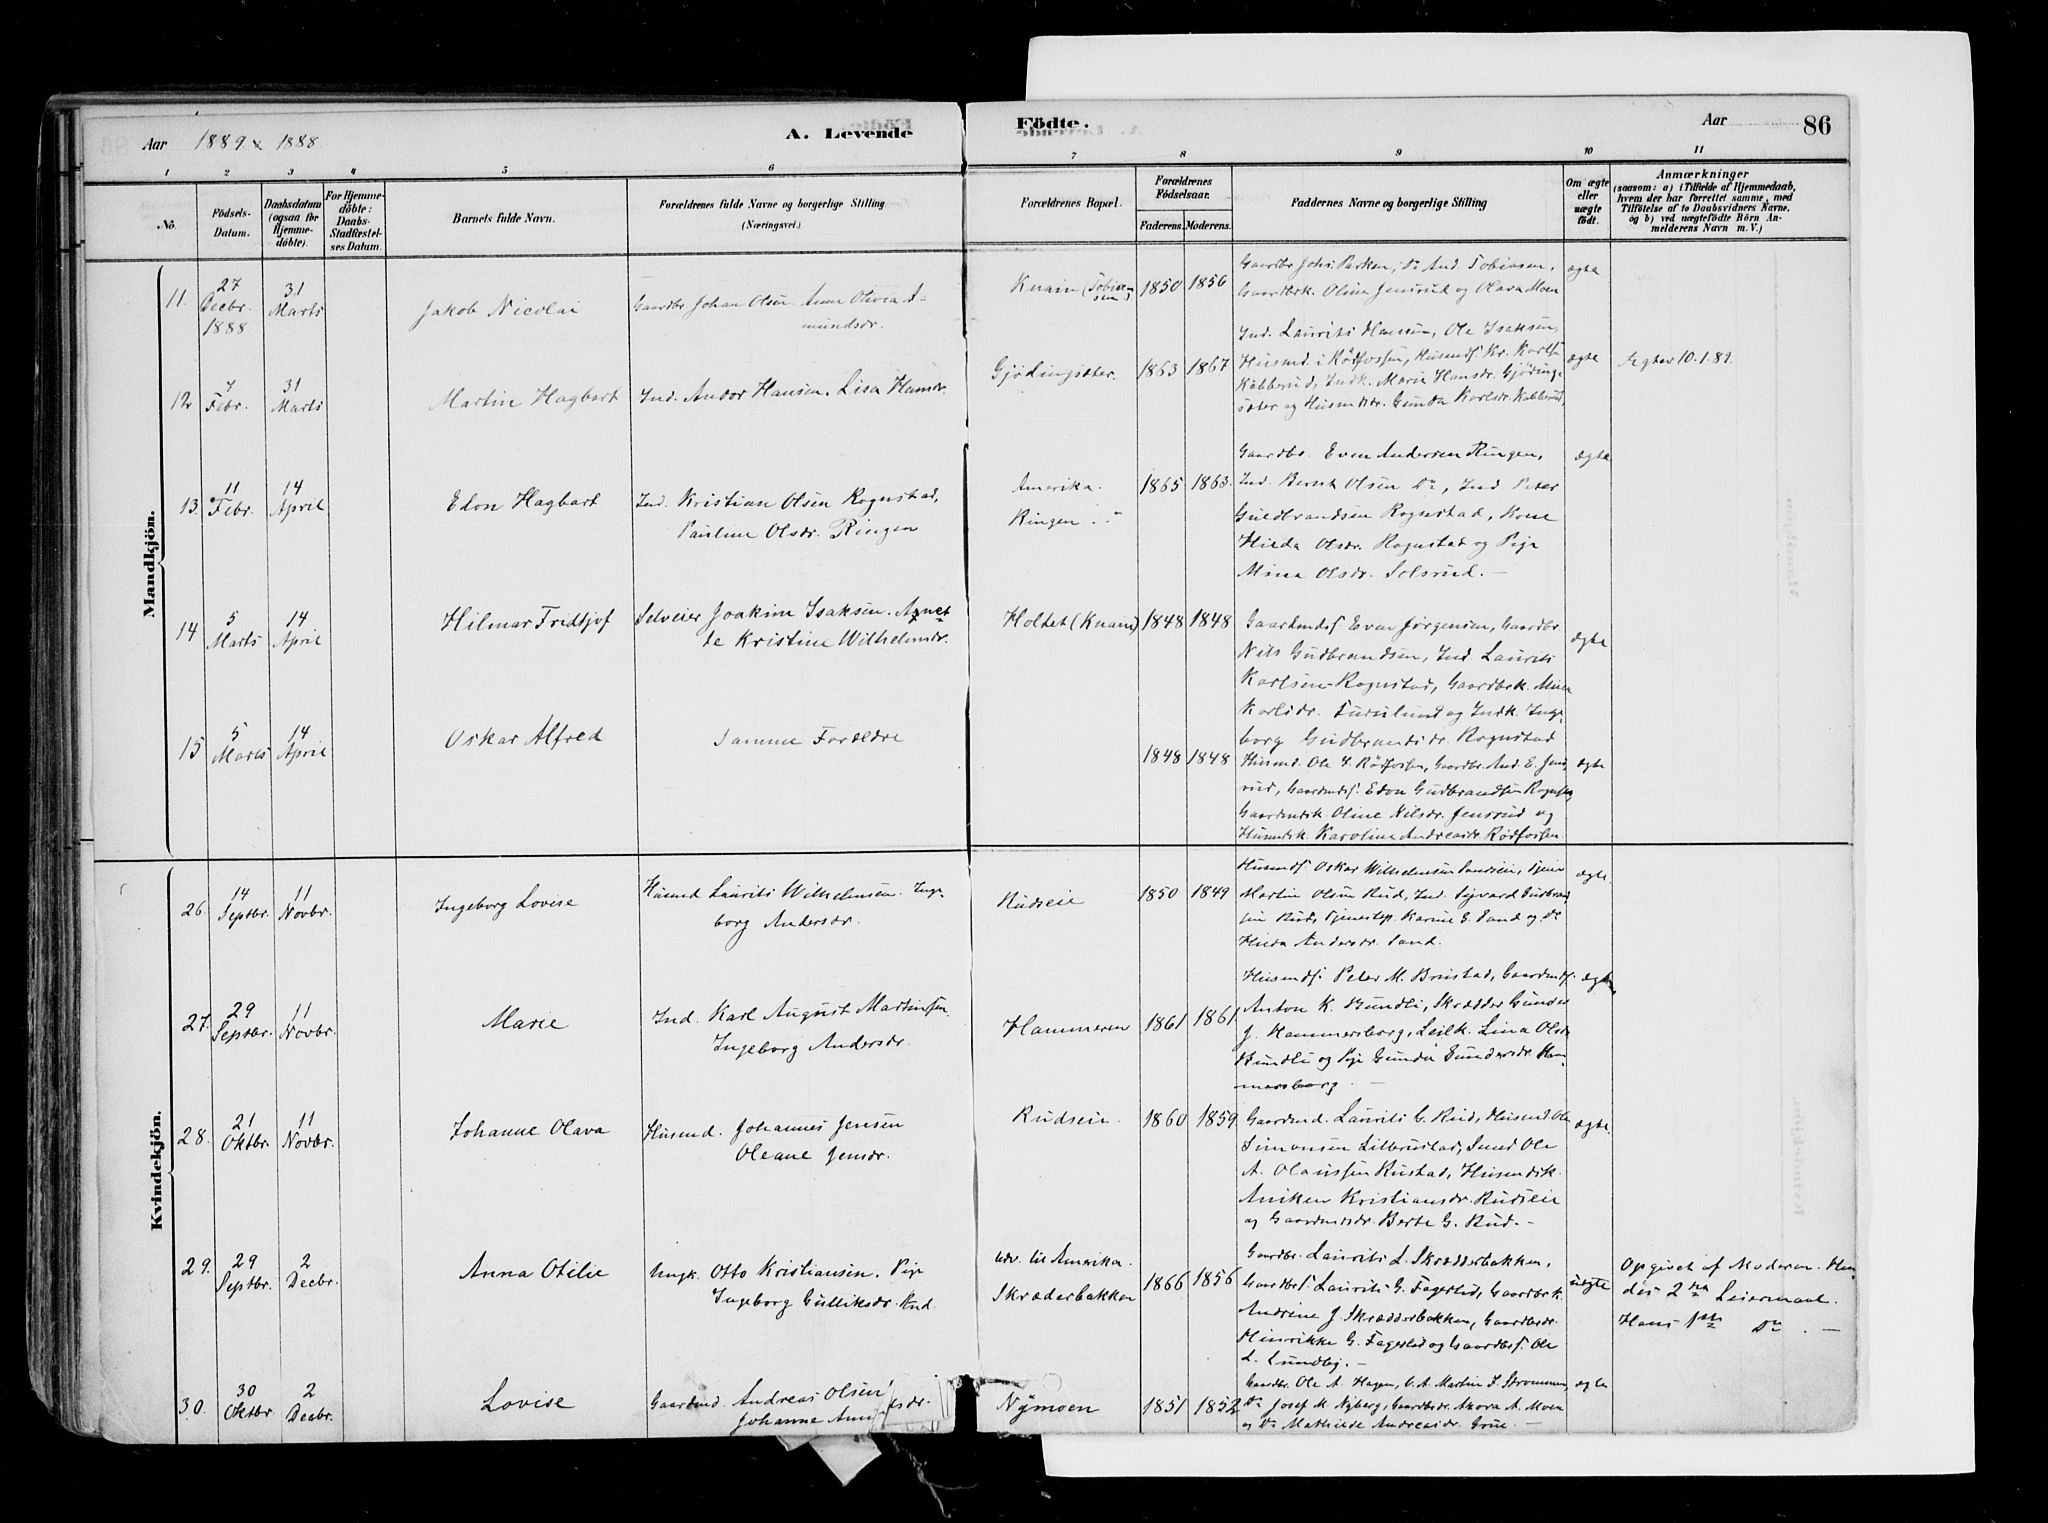 Aar 1889 & 1888
A. Levende
Födte.
Aar
86
1 2 3 4 5 6 7 8 9 10 11
No.
Födsels-Datum.
Daabsdatum (ogsaa för Hjemme-döbte).
For Hjemme-döbte: Daabs-Stadfæstel-ses Datum.
Barnets fulde Navn.
Forældrenes fulde Navne og borgerlige Stilling (Næringsvei.)
Forældrenes Bopæl.
Forældrenes Födselsaar.
Faderens. Moderens.
Faddernes Navne og borgerlige Stilling
Om ægte eller uægte födt.
Anmærkninger
(saasom: a) i Tilfælde af Hjemmedaab, hvem der har forrettet samme, med Tilföielse af to Daabsvidners Navne, og b) ved uægtefödte Börn An-melderens Navn m. V.)
Mandkjön.
11. 27 Decbr. 1888 31 Marts Jakob Nicolai Gaardbr. Johan Olsen. Anne Olivia A-
mundsdr.
Knain (Tobiassen) 1850 1856
Gaardbr. Johs. Parken, Do And. Tobiasen,
Gaardbrk. Oline Jensrud og Olava Moen
ægte
12 7 Febr. 31 Marts Martin Hagbart Ind. Andor Hansen. Lisa Hansdr.
Gjödingsæter. 1863 1867
Ind. Laurits Hansen, Ole Isaksen,
Husmd. i Rödfossen, Husmdf. Kr. Karlsen
Kabberud, Indk. Marie Hansdr. Gjöding-
sæter og Husmdsdr. Gunda Karlsdr. Kabberud,
ægte
Ægtev. 10.1.89.
13. 11 Febr. 14 April Edon Hagbart Ind. Kristian Olsen Rognstad,
Pauline Olsdr. Ringen
Amerika.
Ringen
1865 1863.
Gaardbr. Even Andersen Ringen,
Ind. Bernt Olsen Do, Ind. Peter
Guldbrandsen Rognstad, Kone
Hilda Olsdr. Rognstad og Pige
Mina Olsdr. Solsrud. –
ægte
14 5 Marts 14 April Hilmar Fridtjof Selveier Joakim Isaksen. Agnet-
te Kristine Wilhelmsdr.
Holtet (Knain) 1848 1848
Gaardmdf. Even Jørgensen, Gaardbr.
Nils Gudbrandsen, Ind. Laurits
Karlsen Rognstad, Gaardbrk. Mina
Karlsdr. Furulund og Indk. Inge-
borg Gudbrandsdr. Rognstad
ægte
15 5 Marts 14 April Oskar Alfred Samme Forældre
1848 1848
Husmd. Ole I. Rødfossen, Gaardbr. And. E. Jens-
rud, Gaardmdf. Edon Gudbrandsen Rognstad,
Gaardmdsk. Oline Nilsdr. Jensrud og
Husmdsk. Karoline Andreasdr. Rødfossen
ægte
Kvindekjön.
26. 14 Septbr. 11 Novbr. Ingeborg Lovise Husmd. Laurits Wilhelmsen. Inge-
borg Andersdr.
Rudseie 1850 1849
Husmdf. Oskar Wilhelmsen Sandseie, Tjener
Martin Olsen Rud, Ind. Sigvard Gudbrand-
sen Rud, Tjenestep. Karine E. Sand og Do
Hilda Andersdr. Sand.
ægte
27. 29 Septbr. 11 Novbr. Marie Ind. Karl August Martinsen
Ingeborg Andersdr.
Hammeren 1861 1861
Husmdf. Peter M. Brustad, Gaardmdf.
Anton K. Bundli, Skrædder Gunder
J. Hammersborg, Leilk. Lina Olsdr.
Bundli og Pige Gunda Gundersdr. Ham-
mersborg. –
ægte
28. 21 Oktbr. 11 Novbr. Johanne Olava Husmd. Johannes Jensen
Oleane Jensdr.
Rudseie. 1860 1859
Gaardmd. Laurits G. Rud, Husmd. Ole
Simonsen Lillerustad, Smed Ole
A. Olaussen Rustad, Husmdsk.
Aniken Kristiansdr. Rudseie
og Gaardmdsdr. Berte G. Rud. –
ægte.
29. 29 Septbr. 2 Decbr. Anna Otilie Ungk. Otto Kristiansen. Pige
Ingeborg Gulliksdr. Rud
udv. til Amerika.
Skræderbakken
1866 1856
Gaardbr. Laurits L. Skrædderbakken,
Gaardbrf. Laurits G. Fagerlid, Gaardbrk.
Andrine J. Skrædderbakken, Gaardbrdr.
Hinrikke G. Fagerlid og Gaardbrf. Ole
L. Lundby. –
uægte
Opgivet af Moderen. Hen-
des 2det Leiermaal.
Hans 1ste Do. –
30. 30 Oktbr. 2 Decbr. Lovise Gaardmd. Andreas Olsen
Johanne
Nÿmoen 1851 1852
Gaardbr. Ole A. Hagen, G.A. Martin F. Strommen,
Do Josef K. Nyberg, Gaardbrdr. Anora A. Moen
og Do Mathilde Andreasdr. Grue. –
ægte